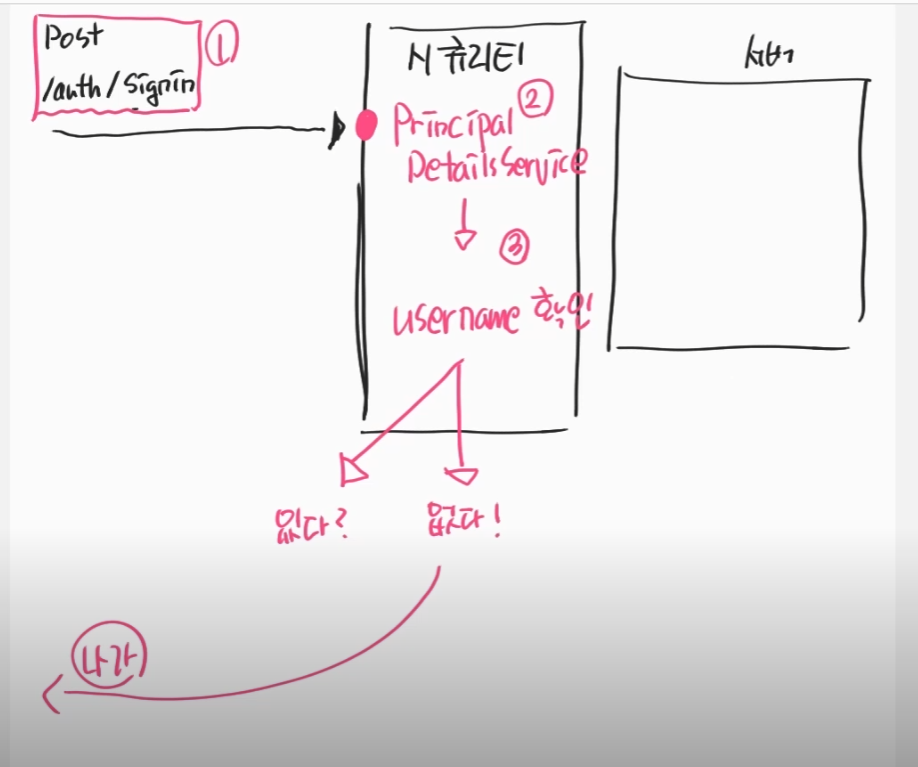 Post
/auth/signin
①
시큐리티
Principal ②
DetailsService
③
username 확인
있다?
없다!
나가
서버